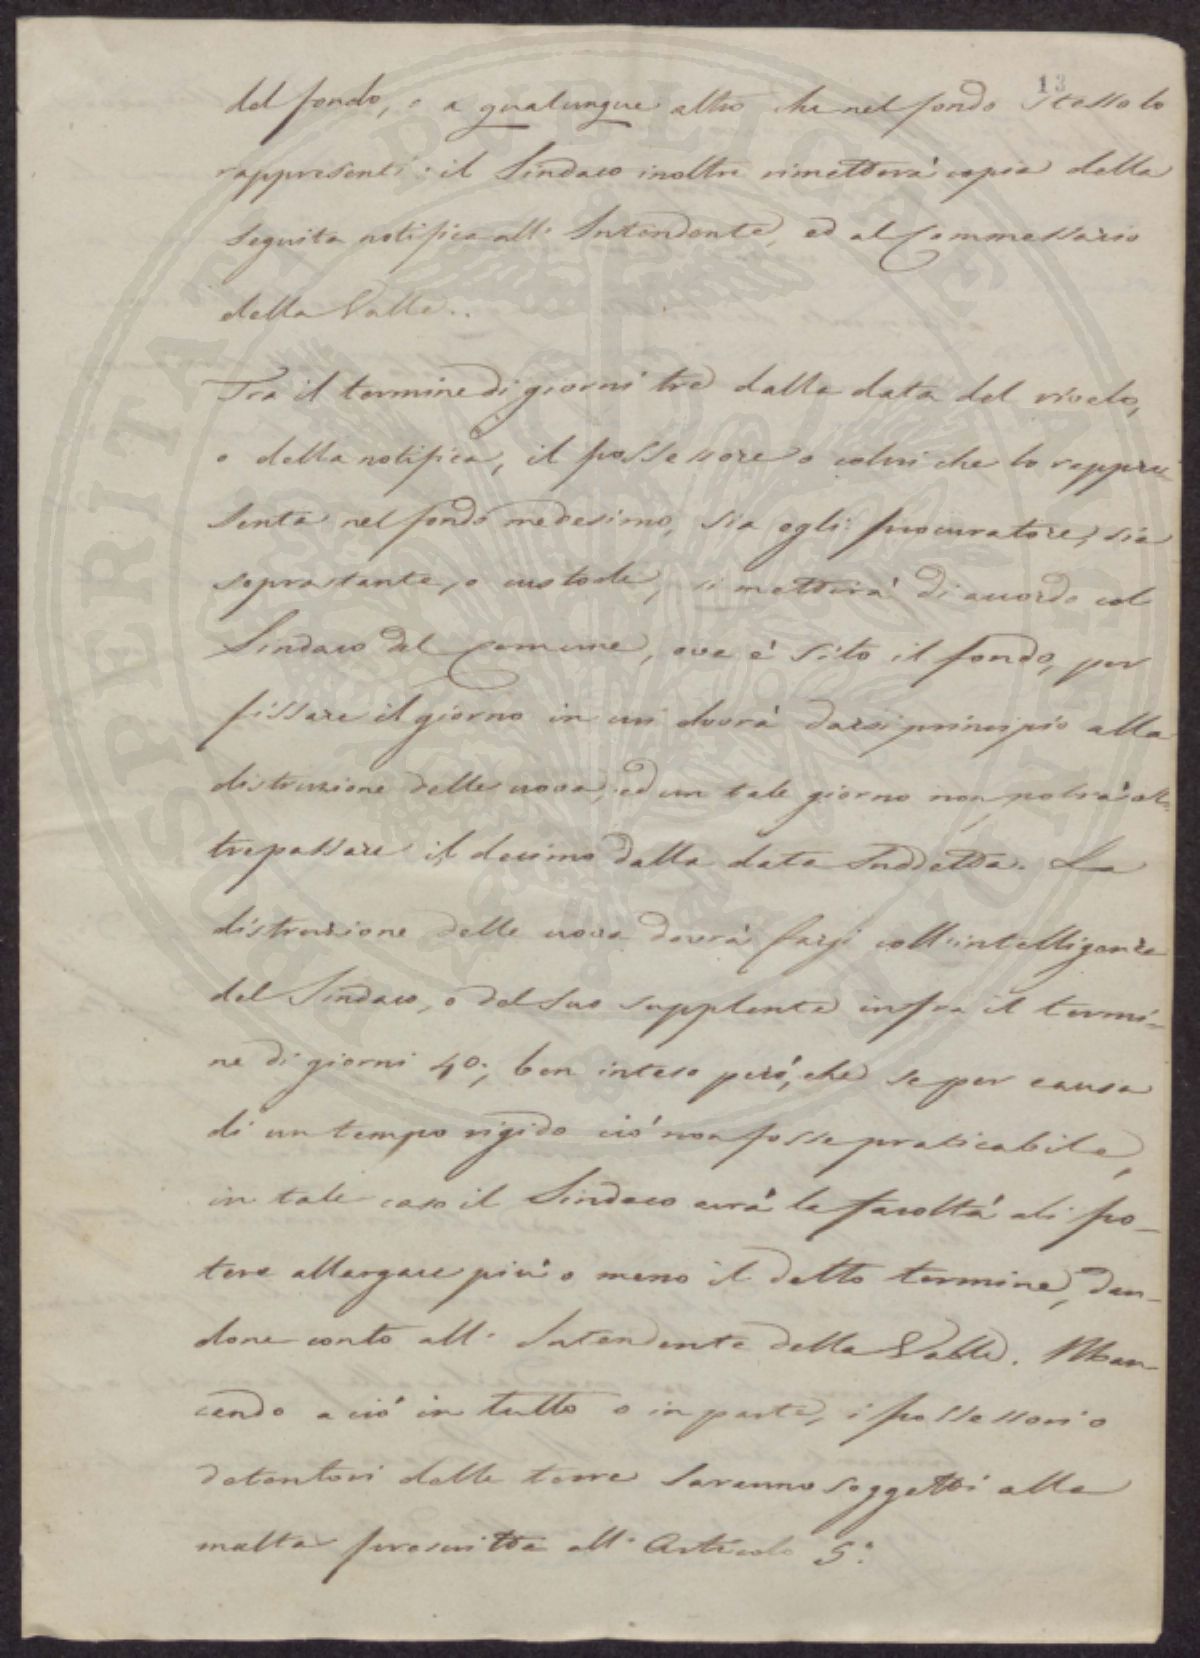 13
del fondo, o a qualunque altro che nel fondo stesso lo
rappresenti: il Sindaco inoltre rimetterà copia della
seguita notifica all'Intendente, ed al Commessario
della Valle.
Tra il termine di giorni tre dalla data del rivelo,
o della notifica, il possessore o colui che lo rappre-
senta nel fondo medesimo, sia egli procuratore, sia
soprastante, o custode, si metterà di accordo col
Sindaco del Comune, ove è sito il fondo, per
fissare il giorno in cui dovrà darsi principio alla
distruzione delle uova, ed un tale giorno non potrà ol-
trepassare il decimo dalla data suddetta. La
distruzione delle uova dovrà farsi coll'intelligenza
del Sindaco, o del suo supplente infra il termi-
ne di giorni 40; ben inteso però, che se per causa
di un tempo rigido ciò non fosse praticabile,
in tale caso il Sindaco avrà la facoltà di po-
tere allargare più o meno il detto termine, dan-
done conto all'Intendente della Valle. Man-
cando a ciò in tutto o in parte, i possessori o
detentori delle terre saranno soggetti alla
multa prescritta all'Articolo 5:
PROSPERITATI PUBLICAE AUGENDAE